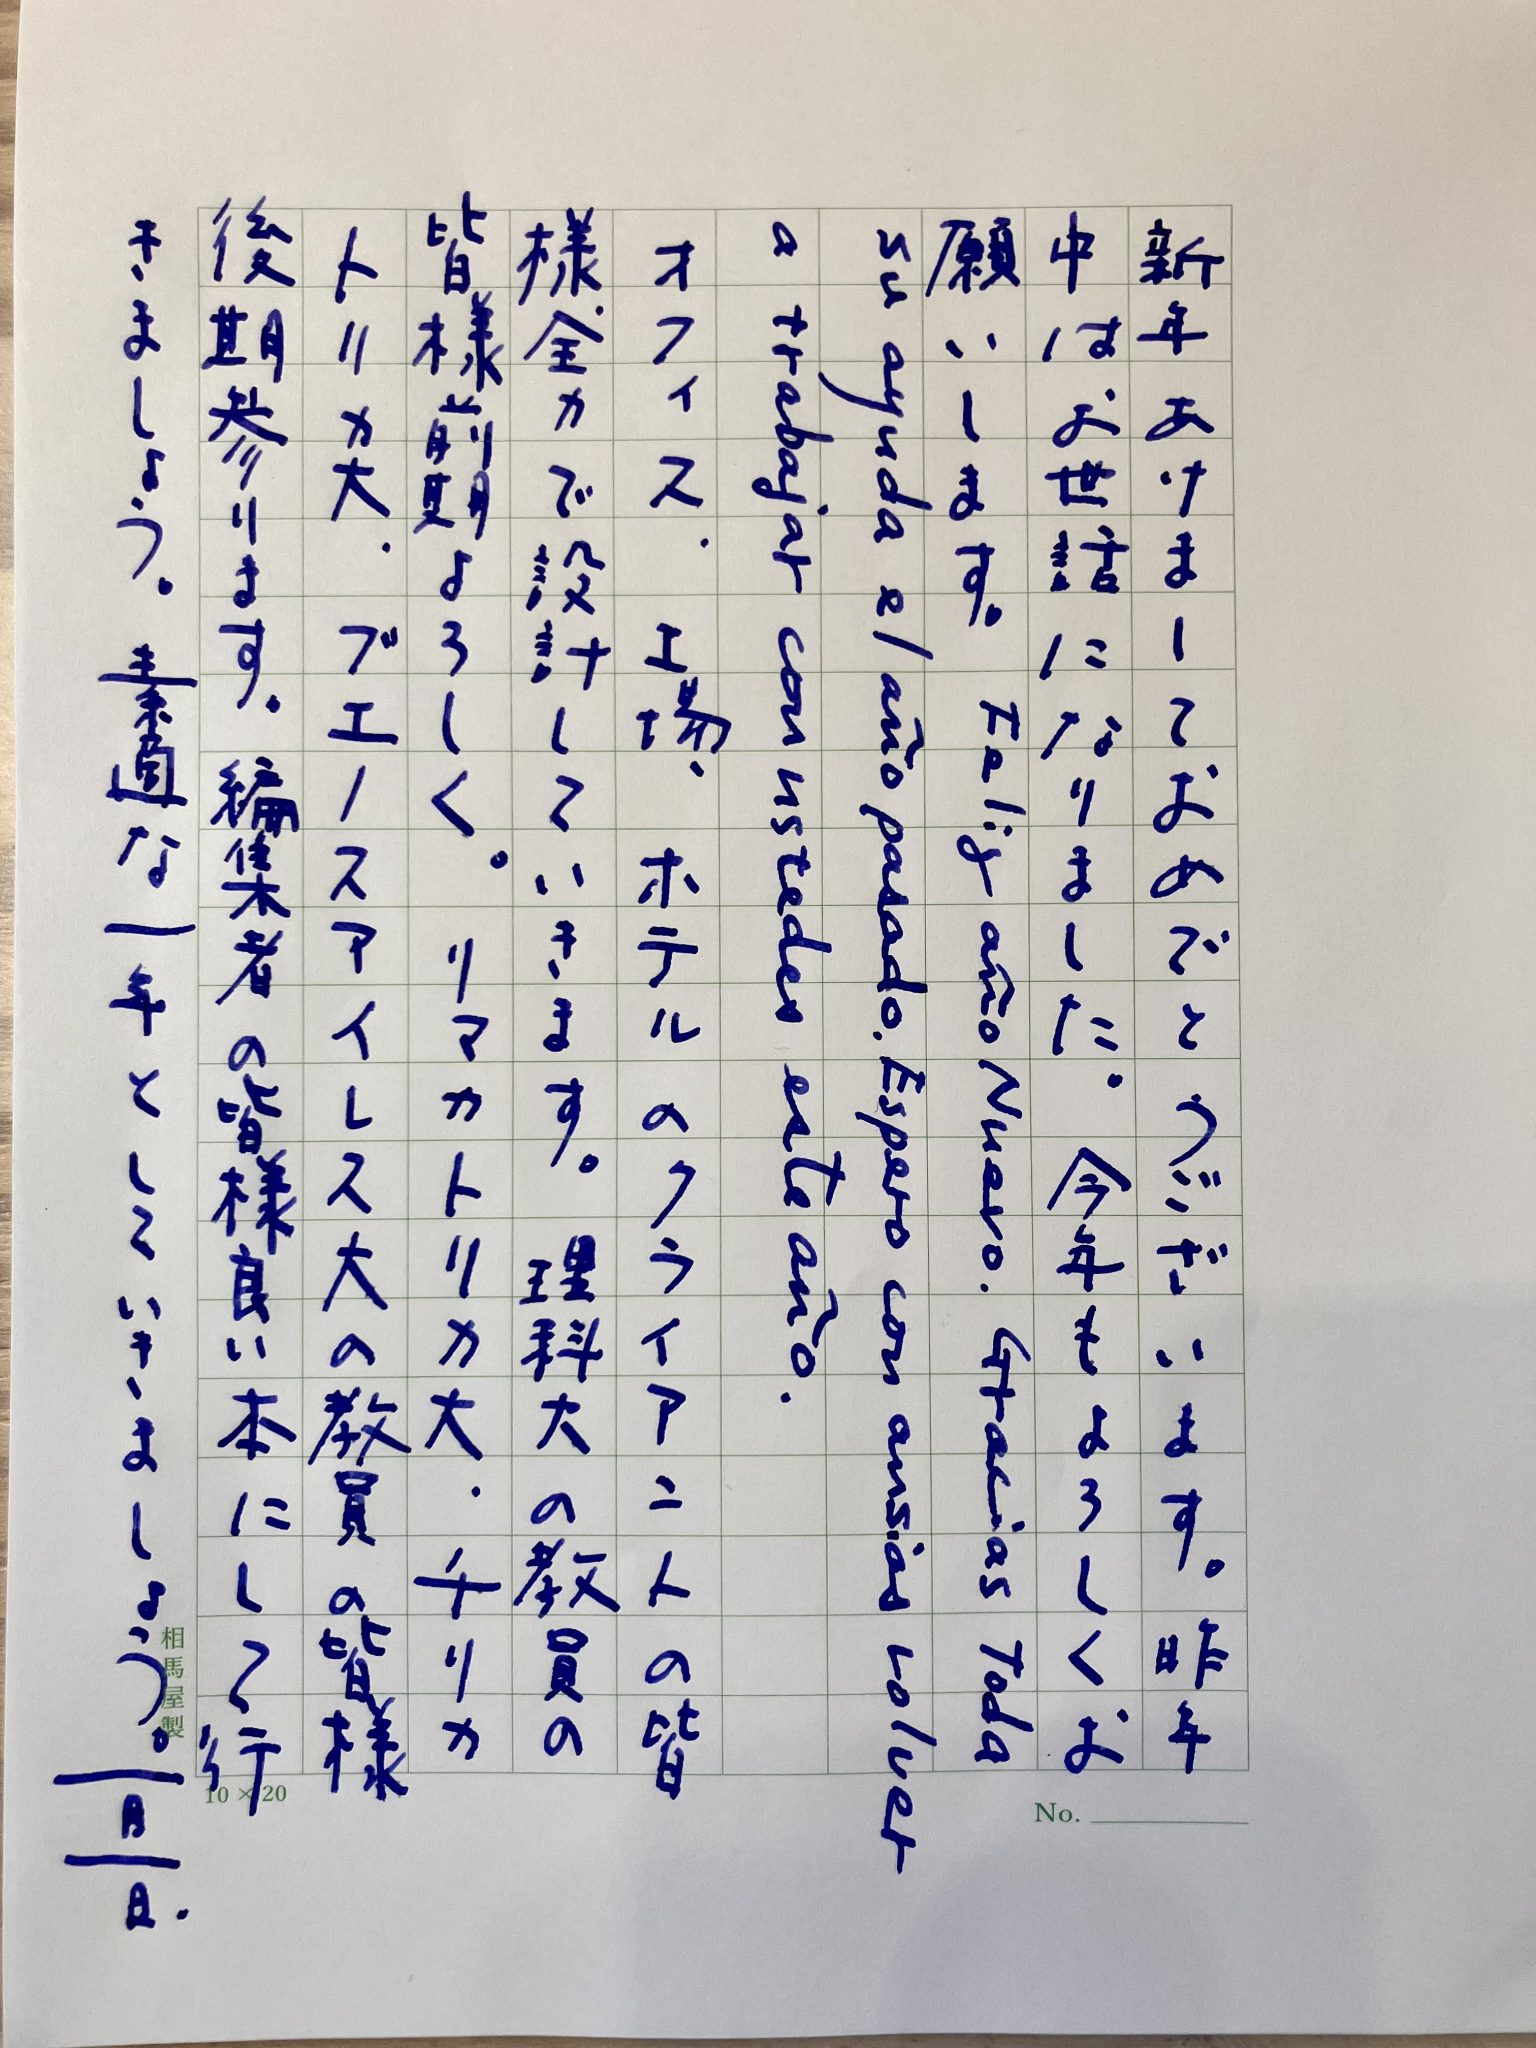 新年あけましておめでとうございます。昨年
中はお世話になりました。今年もよろしくお
願いします。Feliz año Nuevo. Gracias Toda
su ayuda el año pasado. Espero con ansias volver
a trabajar con ustedes este año.
オフィス、工場、ホテルのクライアントの皆
様、全力で設計していきます。理科大の教員の
皆様前期よろしく。リマカトリカ大、チリカ
トリカ大、ブエノスアイレス大の教員の皆様
後期参ります。編集者の皆様良い本にして行
きましょう。素適な一年としていきましょう。一月一日.
相馬屋製
10×20
No.